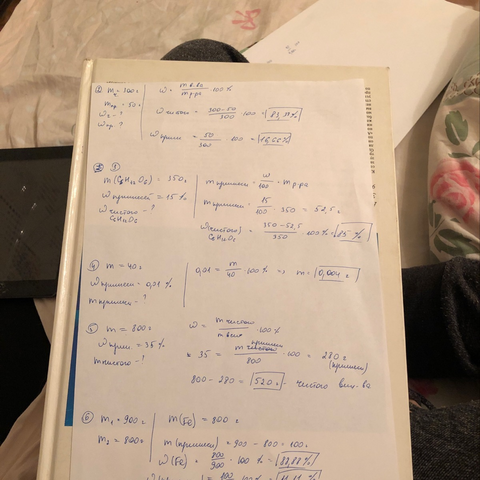 ② m₁ = 300г
mпр = 50г
ω₂ - ?
ωпр. ?
ω = m в.ва / m р-ра · 100%
ω чистого = 300-50 / 300 · 100 = 83,33%
ω примеси = 50 / 300 · 100 = 16,66%
③
m(C₆H₁₂O₆) = 350г
ω примесей = 15%
ω чистого - ?
C₆H₁₂O₆
m примеси = ω / 100 · m р.ра
m примеси = 15 / 100 · 350 = 52,5г
ω (чистого) C₆H₁₂O₆ = 350 - 52,5 / 350 · 100% = 85%
④ m = 40г
ω примеси = 0,01%
m примеси - ?
0,01 = m / 40 · 100% => m = 0,004г
⑤ m = 800г
ω прим = 35%
m чистого - ?
ω = m чистого / m вещ · 100%
35 = m примеси / 800 · 100 = 280г (примеси)
800 - 280 = 520г - чистого вещ-ва
⑥ m₁ = 900г
m₂ = 800г
m(Fe) = 800г
m(примеси) = 900 - 800 = 100г
ω(Fe) = 800 / 900 · 100% = 88,88%